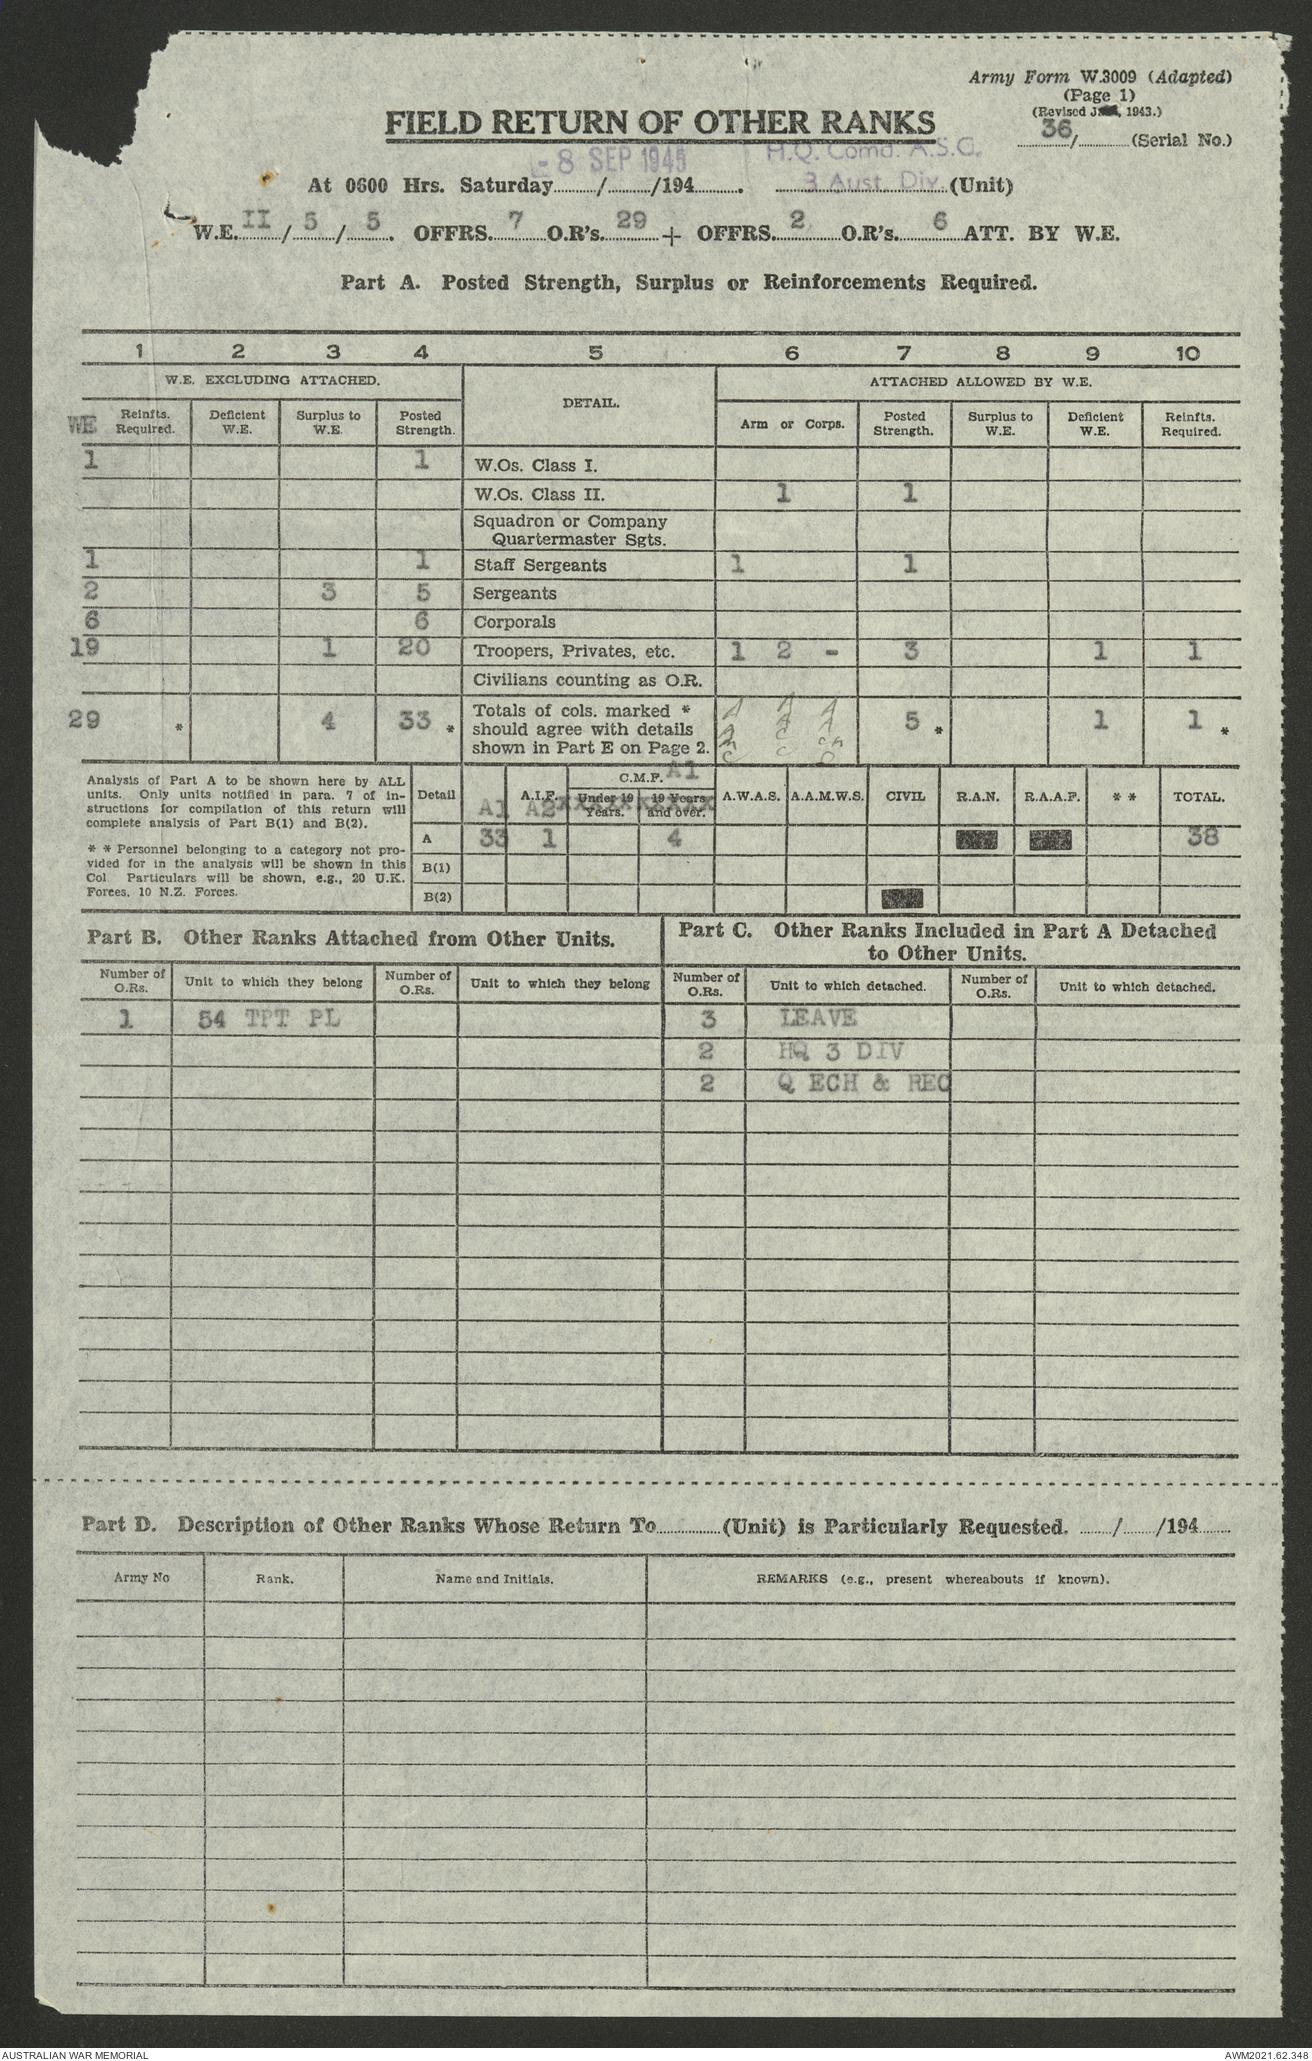 Army Form W.3009 (Adapted)
(Page 1)
(Revised 1943.)
36/ (Serial No.)
FIELD RETURN OF OTHER RANKS
- 8 SEP 1945 H.Q. Comd. A.S.C.
At 0600 Hrs. Saturday / /194 . 3 Aust. Div. (Unit)
W.E. II / 5 / 5 . OFFRS. 7 O.R's. 29 + OFFRS. 2 O.R's. 6 ATT. BY W.E.
Part A. Posted Strength, Surplus or Reinforcements Required.
1 2 3 4 5 6 7 8 9 10
W.E. EXCLUDING ATTACHED. DETAIL. ATTACHED ALLOWED BY W.E.
WE Reinfts. Required. Deficient W.E. Surplus to W.E. Posted Strength. Arm or Corps. Posted Strength. Surplus to W.E. Deficient W.E. Reinfts. Required.
1 1 W.Os. Class I.
W.Os. Class II. 1 1
Squadron or Company
Quartermaster Sgts.
1 1 Staff Sergeants 1 1
2 3 5 Sergeants
6 6 Corporals
19 1 20 Troopers, Privates, etc. 1 2 - 3 1 1
Civilians counting as O.R.
29 * 4 33 * Totals of cols. marked * 5 * 1 1 *
should agree with details
shown in Part E on Page 2.
Analysis of Part A to be shown here by ALL
units. Only units notified in para. 7 of in-
structions for compilation of this return will
complete analysis of Part B(1) and B(2).
* * Personnel belonging to a category not pro-
vided for in the analysis will be shown in this
Col. Particulars will be shown, e.g., 20 U.K.
Forces, 10 N.Z. Forces.
Detail A.I.F. C.M.F. A1 A.W.A.S. A.A.M.W.S. CIVIL R.A.N. R.A.A.F. * * TOTAL.
A1 A2 Under 19 Years. 19 Years and over.
A 33 1 4 38
B(1)
B(2)
Part B. Other Ranks Attached from Other Units.
Number of O.Rs. Unit to which they belong Number of O.Rs. Unit to which they belong
1 54 TPT PL
Part C. Other Ranks Included in Part A Detached
to Other Units.
Number of O.Rs. Unit to which detached. Number of O.Rs. Unit to which detached.
3 LEAVE
2 HQ 3 DIV
2 Q ECH & REC
Part D. Description of Other Ranks Whose Return To (Unit) is Particularly Requested. / /194
Army No Rank. Name and Initials. REMARKS (e.g., present whereabouts if known).
AUSTRALIAN WAR MEMORIAL AWM2021.62.348